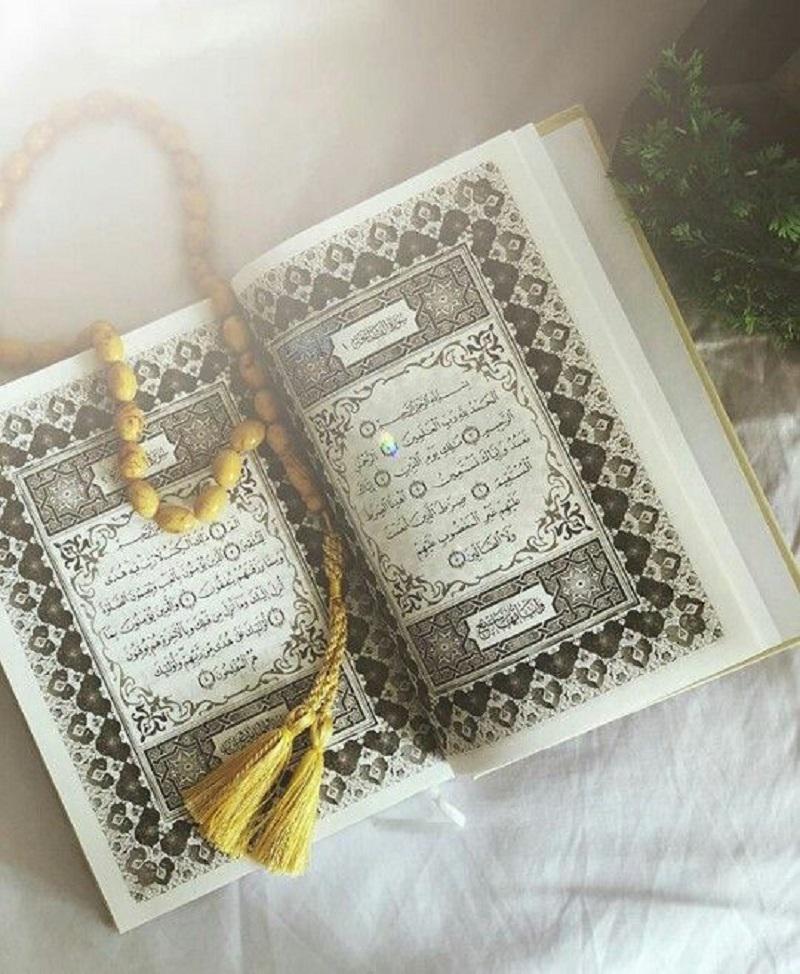 سُورَةُ الفَاتِحَةِ
بِسْمِ اللَّهِ الرَّحْمَٰنِ الرَّحِيمِ
الْحَمْدُ لِلَّهِ رَبِّ الْعَالَمِينَ الرَّحْمَٰنِ
الرَّحِيمِ مَالِكِ يَوْمِ الدِّينِ إِيَّاكَ
نَعْبُدُ وَإِيَّاكَ نَسْتَعِينُ اهْدِنَا الصِّرَاطَ
الْمُسْتَقِيمَ صِرَاطَ الَّذِينَ أَنْعَمْتَ
عَلَيْهِمْ غَيْرِ الْمَغْضُوبِ عَلَيْهِمْ
وَلَا الضَّالِّينَ
سُورَةُ
الرَّحِيمِ
الم ذَٰلِكَ الْكِتَابُ لَا رَيْبَ فِيهِ هُدًى
لِلْمُتَّقِينَ الَّذِينَ يُؤْمِنُونَ بِالْغَيْبِ وَيُقِيمُونَ الصَّلَاةَ
وَمِمَّا رَزَقْنَاهُمْ يُنْفِقُونَ وَالَّذِينَ يُؤْمِنُونَ بِمَا
أُنْزِلَ إِلَيْكَ وَمَا أُنْزِلَ مِنْ قَبْلِكَ وَبِالْآخِرَةِ هُمْ يُوقِنُونَ
أُولَٰئِكَ عَلَىٰ هُدًى مِنْ رَبِّهِمْ وَأُولَٰئِكَ
هُمُ الْمُفْلِحُونَ